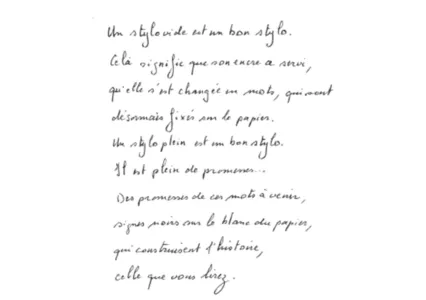 Un stylo vide est un bon stylo.
Cela signifie que son encre a servi,
qu'elle s'est changée en mots, qui sont
désormais fixés sur le papier.
Un stylo plein est un bon stylo.
Il est plein de promesses...
Des promesses de ces mots à venir,
signes noirs sur le blanc du papier,
qui construisent l'histoire,
celle que vous lirez.